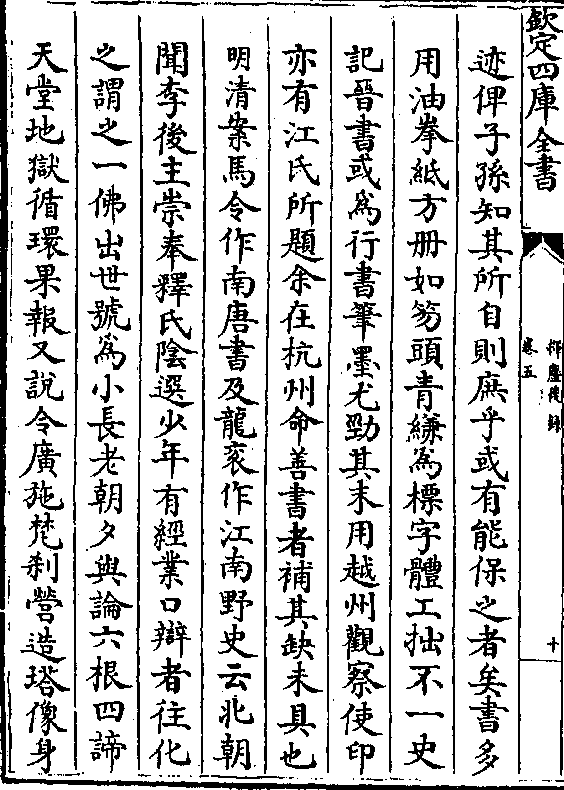 欽定四庫全書
揮麈後録
卷五
十
迹俾子孫知其所自則庶乎或有能保之者矣書多
用油拳紙方册如笏頭青縑為標字體工拙不一史
記晉書或為行書筆墨尤勁其末用越州觀察使印
亦有江氏所題余在杭州命善書者補其缺未具也
明清案馬令作南唐書及龍衮作江南野史云北朝
聞李後主崇奉釋氏陰選少年有經業口辯者往化
之謂之一佛出世號為小長老朝夕與論六根四諦
天堂地獄循環果報又說令廣施梵刹營造塔像身